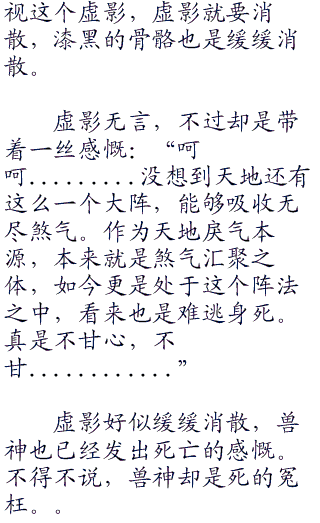 视这个虚影，虚影就要消
散，漆黑的骨骼也是缓缓消
散。
虚影无言，不过却是带
着一丝感慨：“呵
呵.........没想到天地还有
这么一个大阵，能够吸收无
尽煞气。作为天地戾气本
源，本来就是煞气汇聚之
体，如今更是处于这个阵法
之中，看来也是难逃身死。
真是不甘心，不
甘............”
虚影好似缓缓消散，兽
神也已经发出死亡的感慨。
不得不说，兽神却是死的冤
枉。。